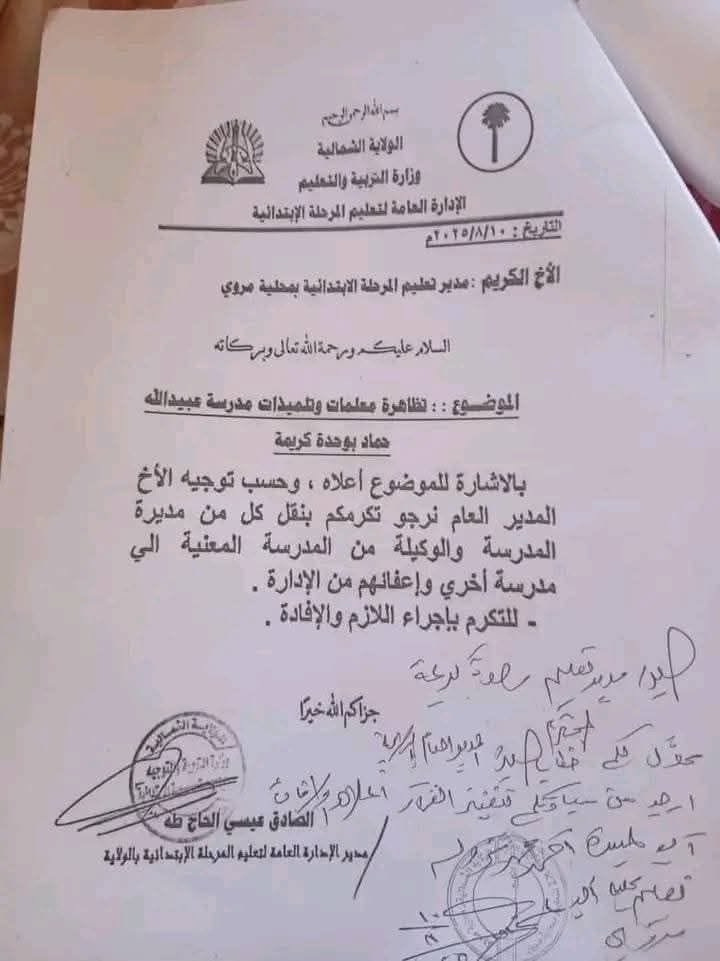 بسم الله الرحمن الرحيم
الولاية الشمالية
وزارة التربية والتعليم
الإدارة العامة لتعليم المرحلة الإبتدائية
التاريخ : ٢٠٢٥/٨/١٠م
الأخ الكريم : مدير تعليم المرحلة الابتدائية بمحلية مروي
السلام عليكم ورحمة الله تعالى وبركاته
الموضوع : : تظاهرة معلمات وتلميذات مدرسة عبيدالله
حماد بوحدة كريمة
بالاشارة للموضوع أعلاه ، وحسب توجيه الأخ
المدير العام نرجو تكرمكم بنقل كل من مديرة
المدرسة والوكيلة من المدرسة المعنية الي
مدرسة أخري وإعفائهم من الإدارة .
- للتكرم بإجراء اللازم والإفادة .
جزاكم الله خيرًا
الصادق عيسي الحاج طه
مدير الإدارة العامة لتعليم المرحلة الإبتدائية بالولاية
السيد/ مدير تعليم وحدة كريمة
المحترم
محول لكم خطاب السيد المدير العام
ارجو من سيادتكم تنفيذ القرار أعلاه